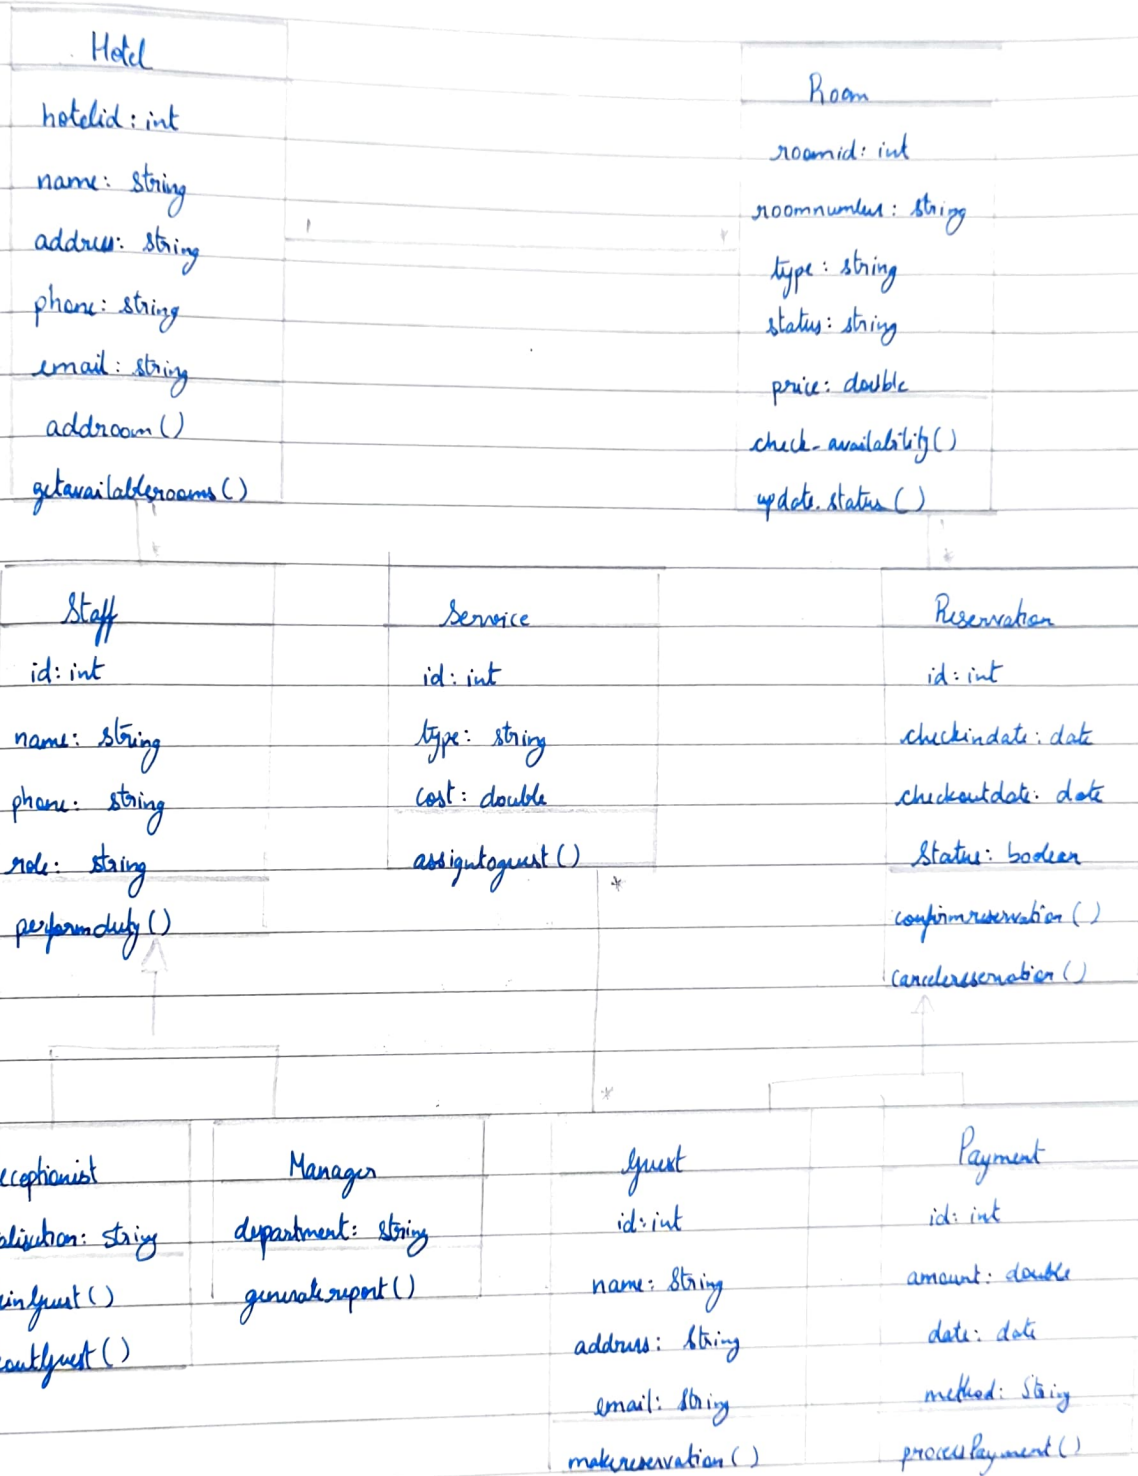 Hotel
hotelid: int
name: string
address: string
phone: string
email: string
addroom()
getavailablerooms()
Room
roomid: int
roomnumber: string
type: string
status: string
price: double
check_availability()
update_status()
1
*
*
*
Staff
id: int
name: string
phone: string
role: string
performduty()
Service
id: int
type: string
cost: double
assigntoguest()
*
*
Reservation
id: int
checkindate: date
checkoutdate: date
Status: boolean
confirmreservation()
cancelreservation()
eceptionist
: string
inGuest()
outGuest()
Manager
department: string
generatereport()
Guest
id: int
name: String
address: String
email: String
makereservation()
Payment
id: int
amount: double
date: date
method: String
processPayment()